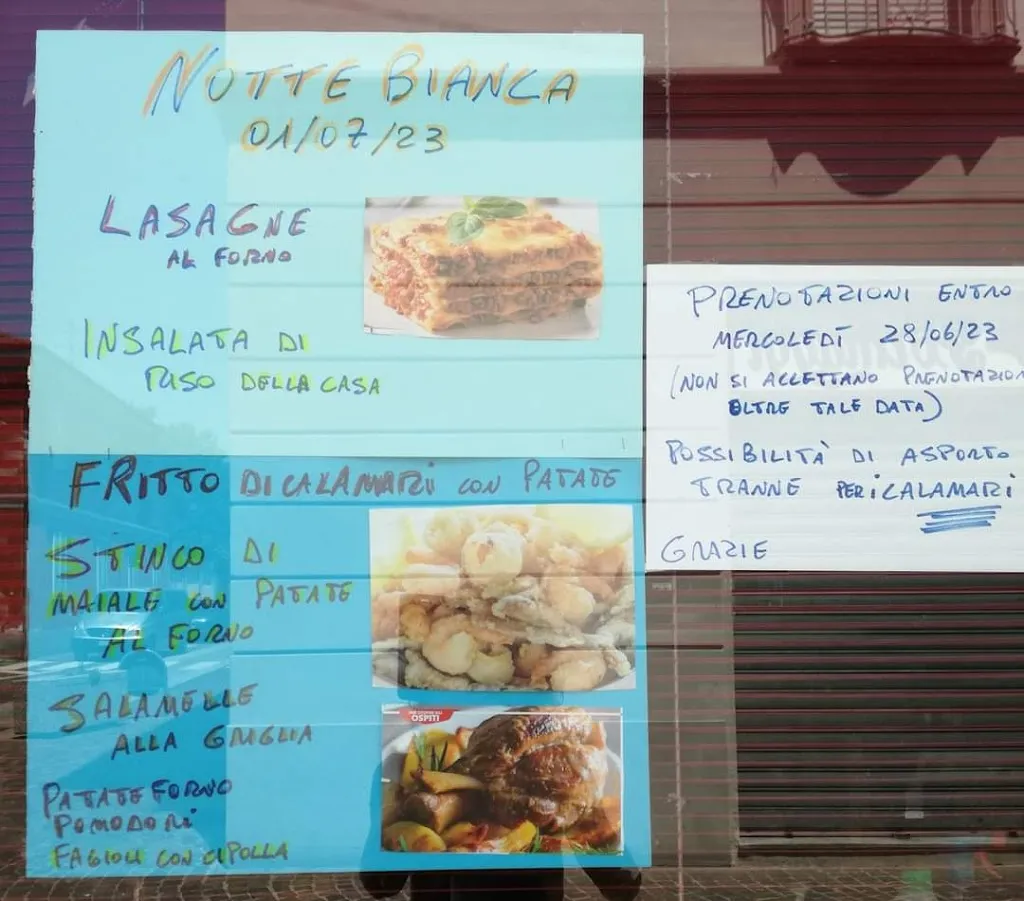 NOTTE BIANCA
01/07/23
LASAGNE
AL FORNO
INSALATA DI
RISO DELLA CASA
FRITTO DI CALAMARI CON PATATE
STINCO DI
MAIALE CON PATATE
AL FORNO
SALAMELLE
ALLA GRIGLIA
PATATE FORNO
POMODORI
FAGIOLI CON CIPOLLA
OSPITI
PRENOTAZIONI ENTRO
MERCOLEDÌ 28/06/23
(NON SI ACCETTANO PRENOTAZION
OLTRE TALE DATA)
POSSIBILITÀ DI ASPORTO
TRANNE PER i CALAMARI
GRAZIE